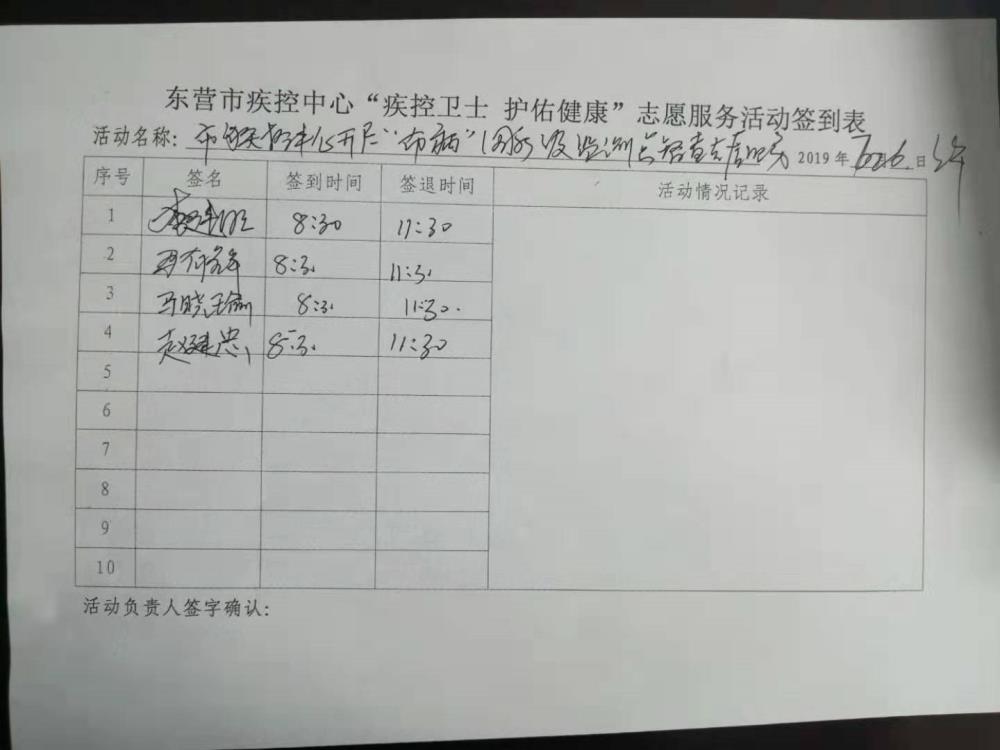 东营市疾控中心“疾控卫士 护佑健康”志愿服务活动签到表
活动名称: 开 “布病” 国家级监测点 查 2019年6月6日
序号 签名 签到时间 签退时间 活动情况记录
1 8:30 11:30
2 8:3 11:3
3 马晓瑜 8:3 11:30.
4 赵建忠 8:3 11:30
5
6
7
8
9
10
活动负责人签字确认: